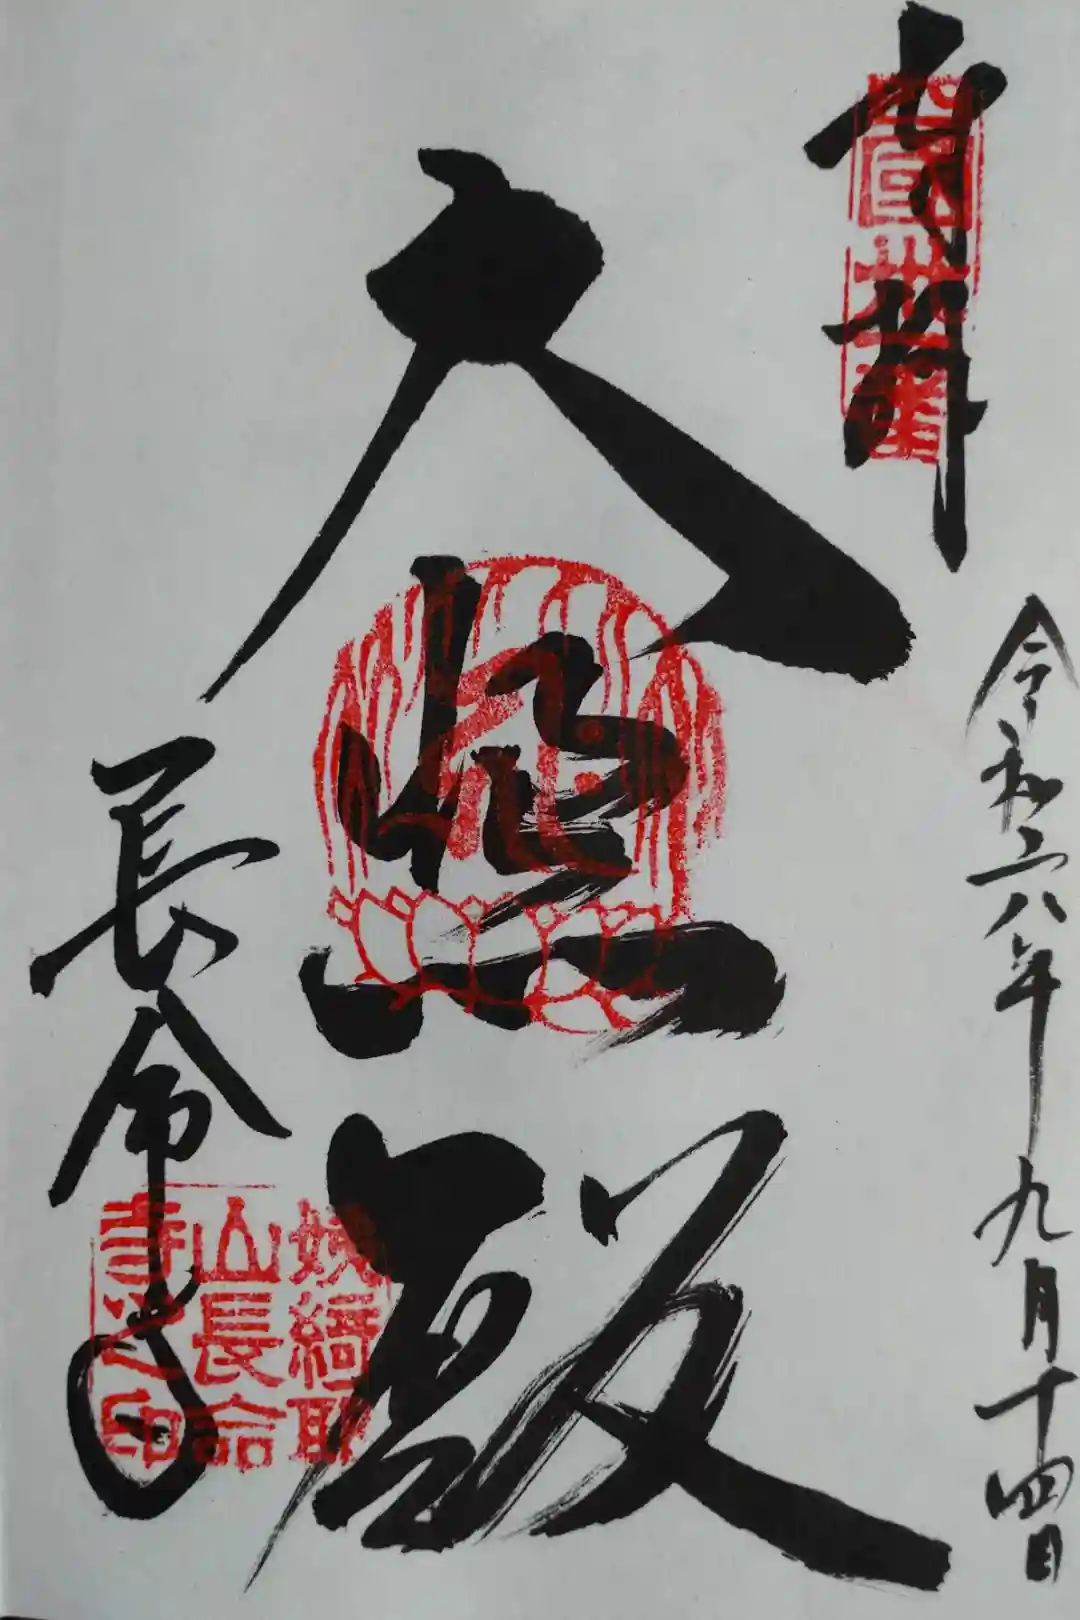 奉拝
西国丗一番
令和六年九月十四日
大悲殿
長命寺
姨綺耶
山長命
寺之印